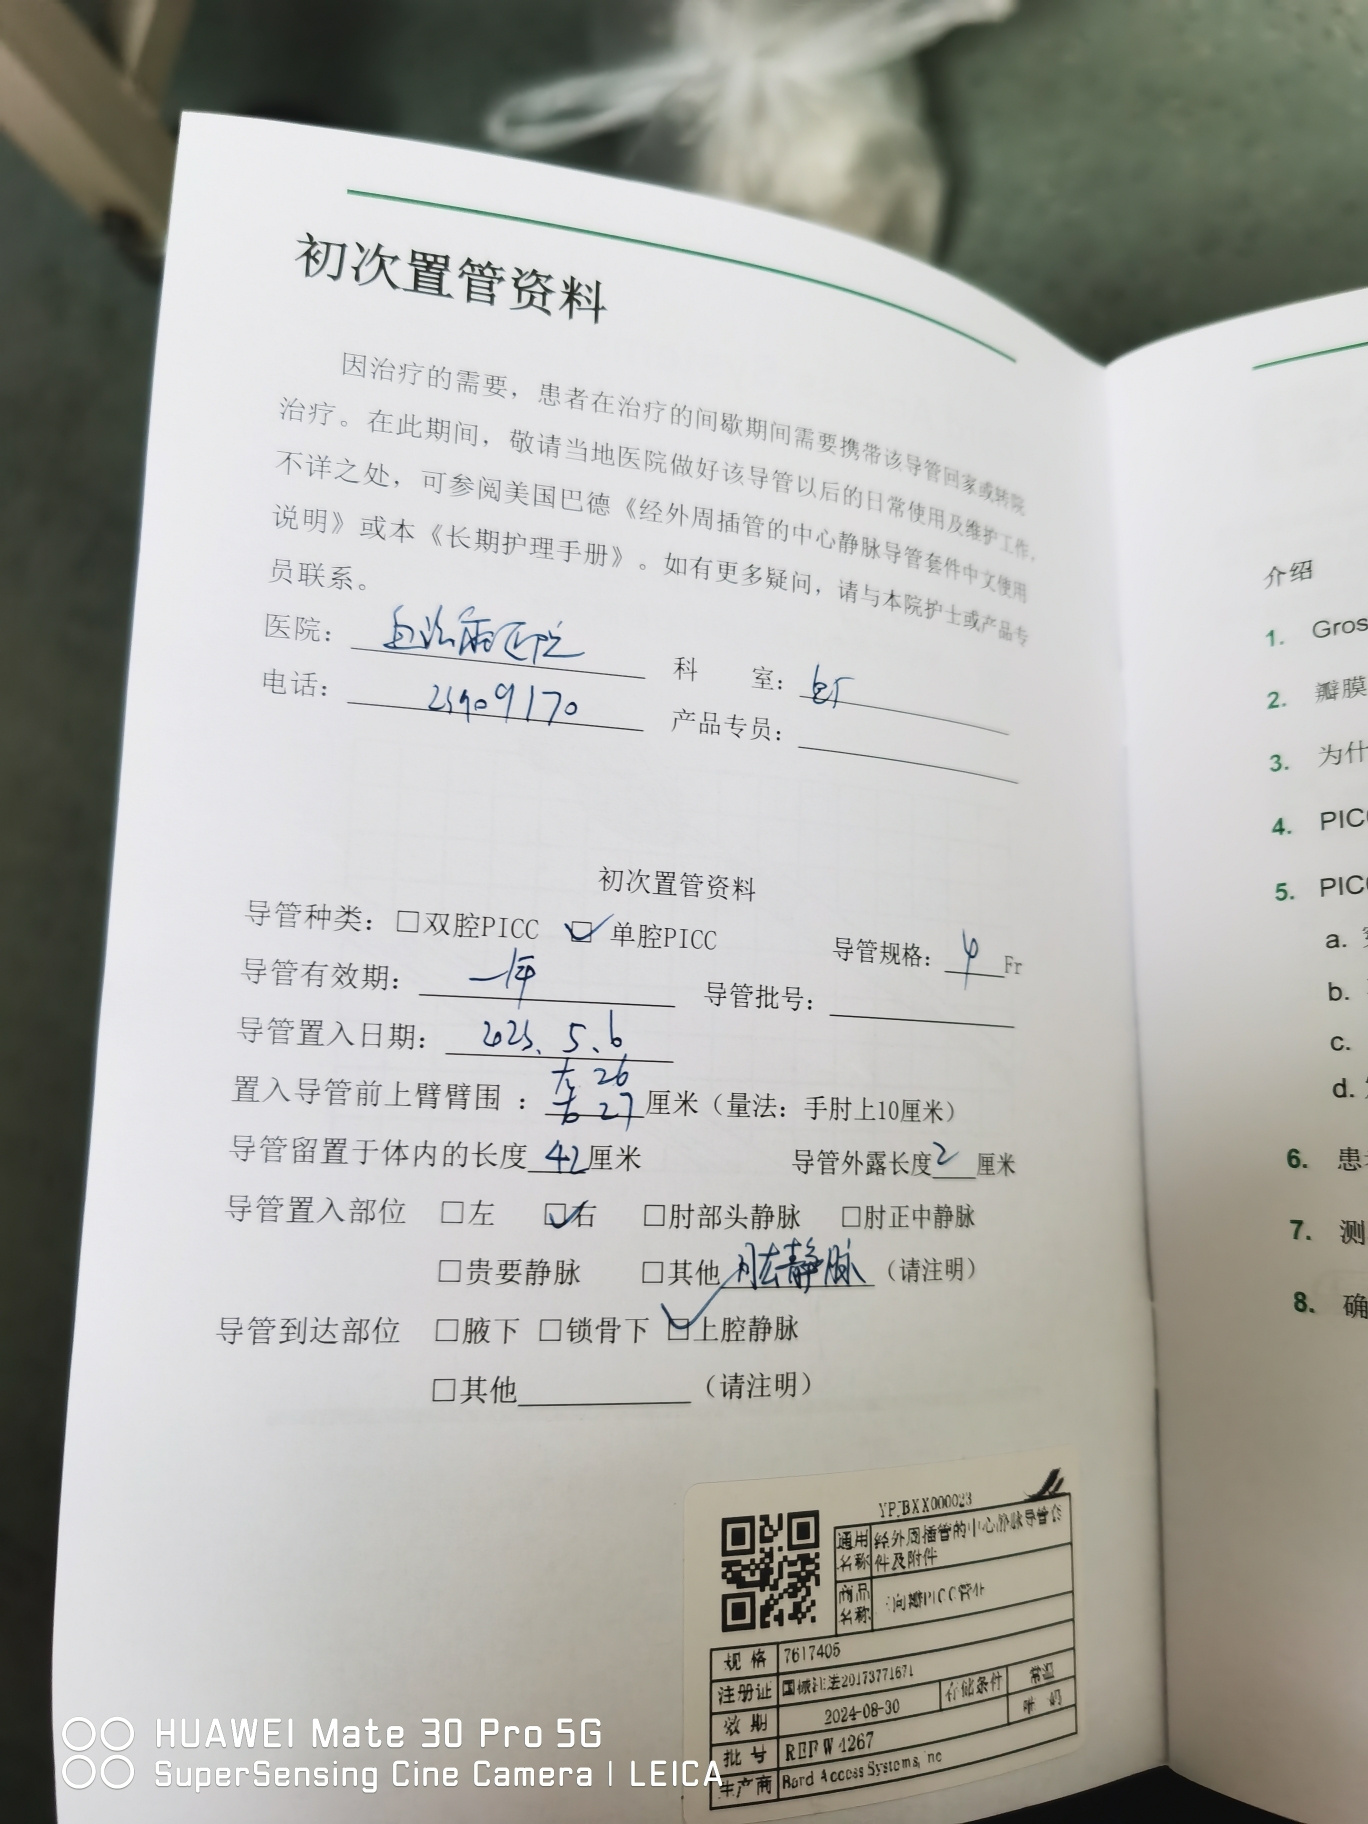 初次置管资料
因治疗的需要，患者在治疗的间歇期间需要携带该导管回家或转院
治疗。在此期间，敬请当地医院做好该导管以后的日常使用及维护工作，
不详之处，可参阅美国巴德《经外周插管的中心静脉导管套件中文使用
说明》或本《长期护理手册》。如有更多疑问，请与本院护士或产品专
员联系。
医院： 医院 科 室：
电话： 9170 产品专员：
初次置管资料
导管种类：□双腔PICC ☑单腔PICC 导管规格：4 Fr
导管有效期：一年 导管批号：
导管置入日期：2023.5.6
置入导管前上臂臂围：左 26 右 27 厘米（量法：手肘上10厘米）
导管留置于体内的长度42厘米 导管外露长度2厘米
导管置入部位 □左 ☑右 □肘部头静脉 □肘正中静脉
□贵要静脉 □其他 静脉（请注明）
导管到达部位 □腋下 □锁骨下 ☑上腔静脉
□其他（请注明）
通用名称 经外周插管的中心静脉导管套件及附件
商品名称 PICC
规格 7617405
注册证 20173771671
效期 2024-08-30 存储条件 常温
批号 4267
生产商 Bard Access Systems, Inc
介绍
1. Gros
2. 瓣膜
3. 为什
4. PIC
5. PIC
a.
b.
c.
d.
6. 患
7. 测
8. 确
HUAWEI Mate 30 Pro 5G
SuperSensing Cine Camera | LEICA